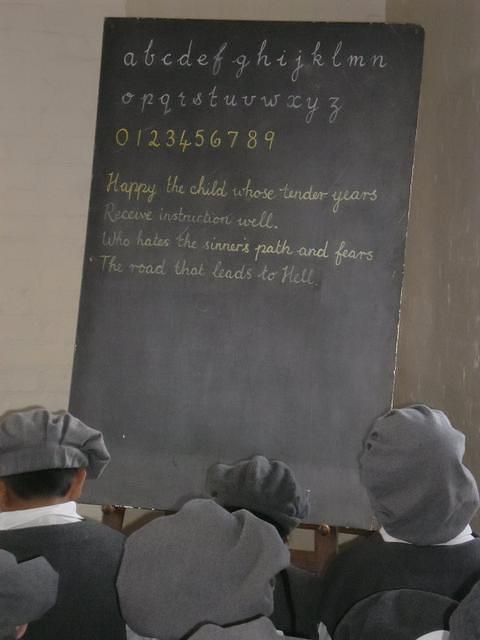 a b c d e f g h i j k l m n
o p q r s t u v w x y z
0 1 2 3 4 5 6 7 8 9
Happy the child whose tender years
Receive instruction well.
Who hates the sinner's path and fears
The road that leads to Hell.